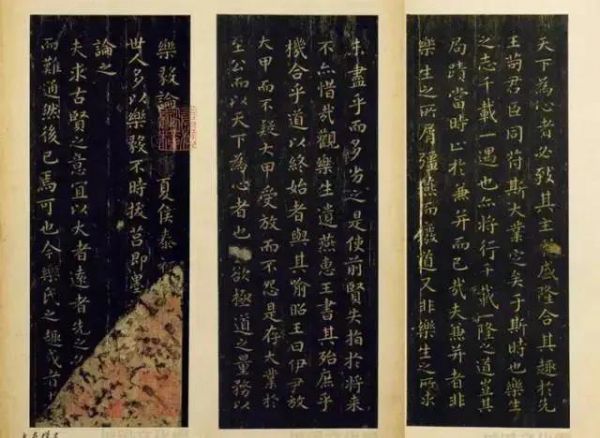 樂毅論 夏侯泰
世人多以樂毅不時拔莒即墨
論之
夫求古賢之意宜以大者遠者先之
而難通然後已焉可也今樂氏之趣或者
未盡乎而多劣之是使前賢失指於將來
不亦惜哉觀樂生遺燕惠王書其殆庶乎
機合乎道以終始者與其喻昭王曰伊尹放
大甲而不疑大甲受放而不怨是存大業於
至公而以天下為心者也 欲極道之量務以
天下為心者必致其主 盛隆合其趣於先
王苟君臣同符斯大業定矣于斯時也樂生
之志千載一遇也亦將行千載一隆之道豈其
局蹟當時止於兼并而已哉夫兼并者非
樂生之所屑彊燕而廢道又非樂生之所求